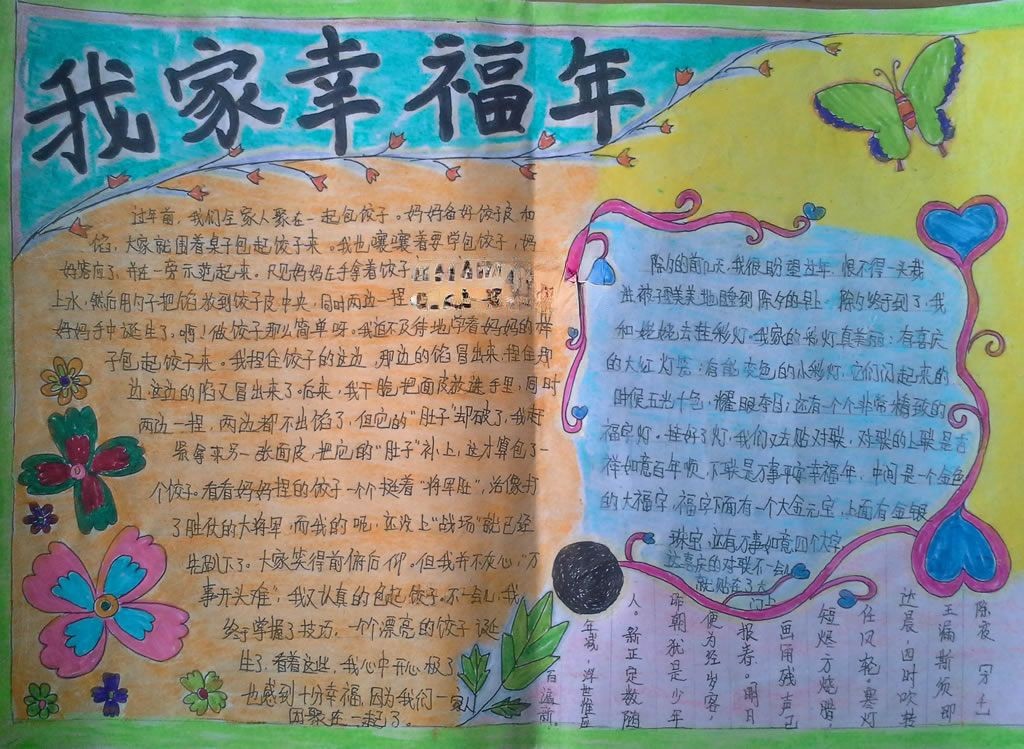 我家幸福年
过年前，我们全家人聚在一起包饺子。妈妈备好饺子皮和
馅，大家就围着桌子包起饺子来。我也嚷嚷着要学包饺子，妈
妈答应了，并在一旁示范起来。只见妈妈左手拿着饺子
上水，然后用勺子把馅放到饺子皮中央，同时两边一捏
妈妈手中诞生了。啊！做饺子那么简单呀。我迫不及待地学着妈妈的样
子包起饺子来。我捏住饺子的这边，那边的馅冒出来，捏住那
边，这边的馅又冒出来了。后来，我干脆把面皮放进手里，同时
两边一捏，两边都不出馅了，但它的“肚子”却破了，我赶
紧拿来另一张面皮，把它的“肚子”补上，这才算包了一
个饺子。看看妈妈捏的饺子一个个挺着“将军肚”，恰像打
了胜仗的大将军，而我的呢，还没上“战场”就已经
先倒下了。大家笑得前俯后仰。但我并不灰心，“万
事开头难”，我又认真的包起饺子。不一会儿，我
终于掌握了技巧，一个漂亮的饺子诞
生了。看着这些，我心中开心极了
也感到十分幸福，因为我们一家人
团聚在一起了。
除夕的前几天，我很盼望过年，恨不得一头栽
进被子里美美地睡到除夕的早上。除夕终于到了，我
和姥姥去挂彩灯。我家的彩灯真美丽：有喜庆
的大红灯笼；有能变色的小彩灯，它们闪起来的
时候五光十色，耀眼夺目；还有一个个非常精致的
福字灯。挂好了灯，我们又去贴对联，对联的上联是吉
祥如意百年顺，下联是万事平安幸福年，中间是一个金色
的大福字，福字下面有一个大金元宝，上面有金银
珠宝，还有万事如意四个大字
这喜庆的对联不一会儿
就贴在了大
门上
除夜
玉漏斯须即
达晨，四时吹转
任风轮。寒灯
短烬方烧腊，
画角残声已
报春。明日
便为经岁客，
昨朝犹是少年
人。新正定数随
年减，浮世惟应
百遍新。